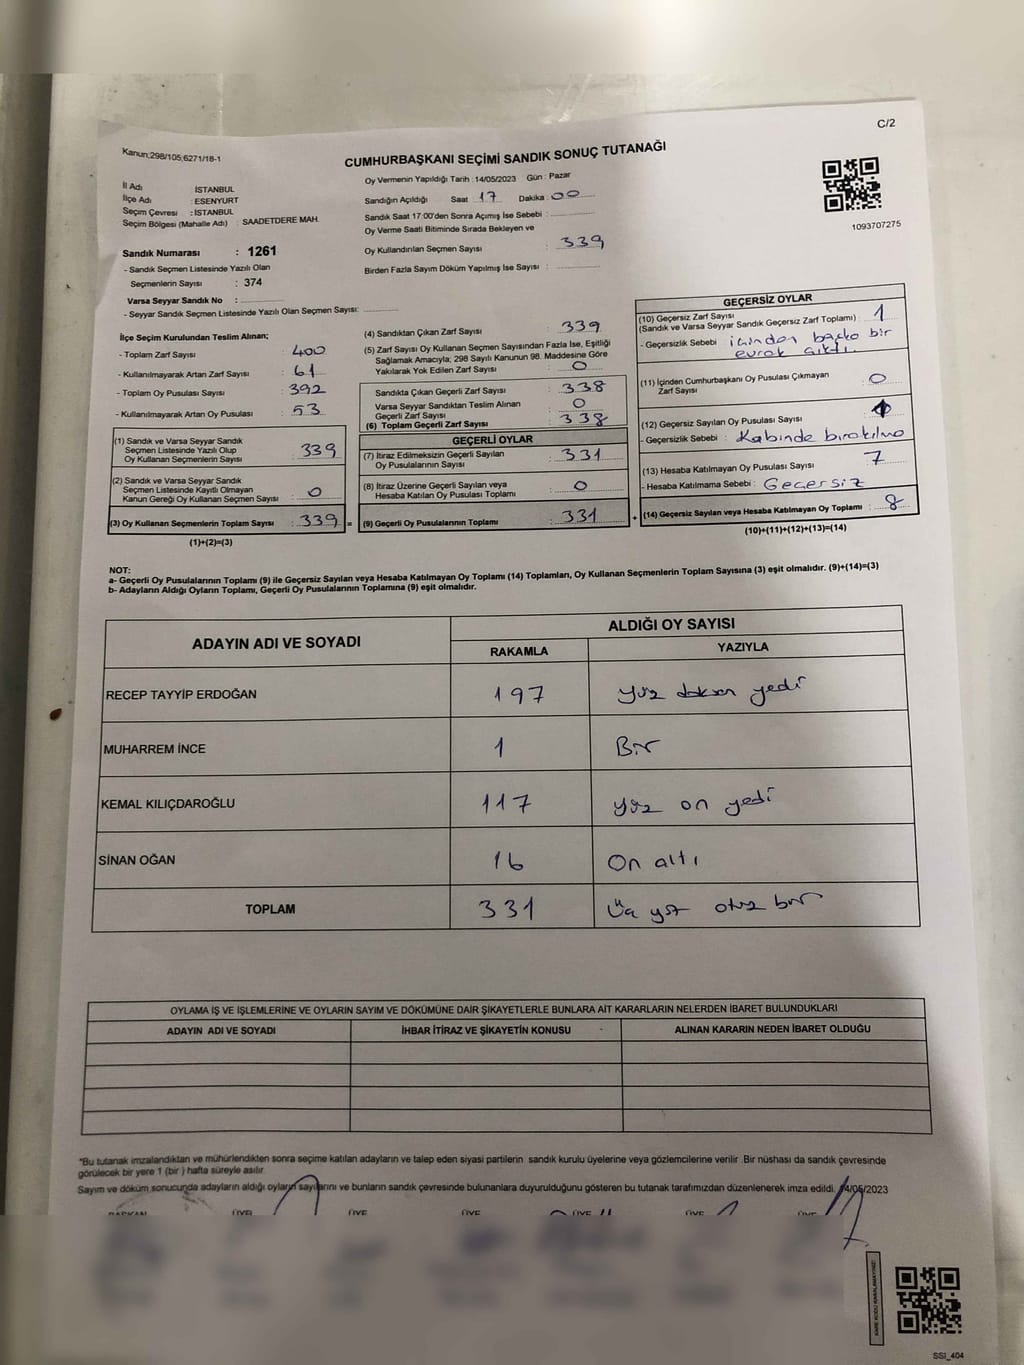 C/2
Kanun;298/105;6271/18-1
CUMHURBAŞKANI SEÇİMİ SANDIK SONUÇ TUTANAĞI
İl Adı : İSTANBUL
İlçe Adı : ESENYURT
Seçim Çevresi : İSTANBUL
Seçim Bölgesi (Mahalle Adı) : SAADETDERE MAH.
Oy Vermenin Yapıldığı Tarih : 14/05/2023 Gün : Pazar
Sandığın Açıldığı Saat 17 Dakika : 00
Sandık Saat 17:00'den Sonra Açılmış İse Sebebi :
Oy Verme Saati Bitiminde Sırada Bekleyen ve
Oy Kullandırılan Seçmen Sayısı : 339
Birden Fazla Sayım Döküm Yapılmış İse Sayısı :
1093707275
Sandık Numarası : 1261
- Sandık Seçmen Listesinde Yazılı Olan
Seçmenlerin Sayısı : 374
Varsa Seyyar Sandık No :
- Seyyar Sandık Seçmen Listesinde Yazılı Olan Seçmen Sayısı:
İlçe Seçim Kurulundan Teslim Alınan;
- Toplam Zarf Sayısı : 400
- Kullanılmayarak Artan Zarf Sayısı : 61
- Toplam Oy Pusulası Sayısı : 392
- Kullanılmayarak Artan Oy Pusulası : 53
(1) Sandık ve Varsa Seyyar Sandık
Seçmen Listesinde Yazılı Olup
Oy Kullanan Seçmenlerin Sayısı : 339
(2) Sandık ve Varsa Seyyar Sandık
Seçmen Listesinde Kayıtlı Olmayan
Kanun Gereği Oy Kullanan Seçmen Sayısı : 0
(3) Oy Kullanan Seçmenlerin Toplam Sayısı : 339 =
(1)+(2)=(3)
(4) Sandıktan Çıkan Zarf Sayısı : 339
(5) Zarf Sayısı Oy Kullanan Seçmen Sayısından Fazla İse, Eşitliği
Sağlamak Amacıyla; 298 Sayılı Kanunun 98. Maddesine Göre
Yakılarak Yok Edilen Zarf Sayısı : 0
Sandıkta Çıkan Geçerli Zarf Sayısı : 338
Varsa Seyyar Sandıktan Teslim Alınan
Geçerli Zarf Sayısı : 0
(6) Toplam Geçerli Zarf Sayısı : 338
GEÇERLİ OYLAR
(7) İtiraz Edilmeksizin Geçerli Sayılan
Oy Pusulalarının Sayısı : 331
(8) İtiraz Üzerine Geçerli Sayılan veya
Hesaba Katılan Oy Pusulası Toplamı : 0
(9) Geçerli Oy Pusulalarının Toplamı : 331 +
GEÇERSİZ OYLAR
(10) Geçersiz Zarf Sayısı
(Sandık ve Varsa Seyyar Sandık Geçersiz Zarf Toplamı) : 1
- Geçersizlik Sebebi : içinden başka bir
evrak çıktı
(11) İçinden Cumhurbaşkanı Oy Pusulası Çıkmayan
Zarf Sayısı : 0
(12) Geçersiz Sayılan Oy Pusulası Sayısı :
- Geçersizlik Sebebi : Kabinde bırakılma
(13) Hesaba Katılmayan Oy Pusulası Sayısı : 7
- Hesaba Katılmama Sebebi : Geçersiz
(14) Geçersiz Sayılan veya Hesaba Katılmayan Oy Toplamı : 8
(10)+(11)+(12)+(13)=(14)
NOT:
a- Geçerli Oy Pusulalarının Toplamı (9) ile Geçersiz Sayılan veya Hesaba Katılmayan Oy Toplamı (14) Toplamları, Oy Kullanan Seçmenlerin Toplam Sayısına (3) eşit olmalıdır. (9)+(14)=(3)
b- Adayların Aldığı Oyların Toplamı, Geçerli Oy Pusulalarının Toplamına (9) eşit olmalıdır.
ADAYIN ADI VE SOYADI
ALDIĞI OY SAYISI
RAKAMLA YAZIYLA
RECEP TAYYİP ERDOĞAN 197 yüz doksan yedi
MUHARREM İNCE 1 Bir
KEMAL KILIÇDAROĞLU 117 yüz on yedi
SİNAN OĞAN 16 On altı
TOPLAM 331 Üç yüz otuz bir
OYLAMA İŞ VE İŞLEMLERİNE VE OYLARIN SAYIM VE DÖKÜMÜNE DAİR ŞİKAYETLERLE BUNLARA AİT KARARLARIN NELERDEN İBARET BULUNDUKLARI
ADAYIN ADI VE SOYADI İHBAR İTİRAZ VE ŞİKAYETİN KONUSU ALINAN KARARIN NEDEN İBARET OLDUĞU
*Bu tutanak imzalandıktan ve mühürlendikten sonra seçime katılan adayların ve talep eden siyasi partilerin sandık kurulu üyelerine veya gözlemcilerine verilir .Bir nüshası da sandık çevresinde
görülecek bir yere 1 (bir ) hafta süreyle asılır.
Sayım ve döküm sonucunda adayların aldığı oyların sayılarını ve bunların sandık çevresinde bulunanlara duyurulduğunu gösteren bu tutanak tarafımızdan düzenlenerek imza edildi. 14/05/2023
BAŞKAN ÜYE ÜYE ÜYE ÜYE ÜYE ÜYE
KARE KODU KARALAMAYINIZ!
SSI_404